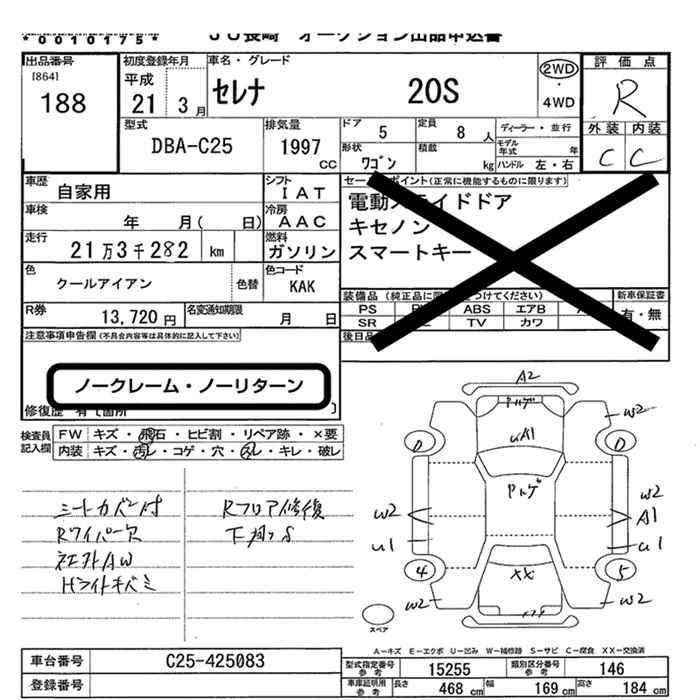 *0010175*
JU長崎 オークション出品申込書
出品番号 初度登録年月 車名・グレード 評価点
[864] 平成 2WD
188 21年 3月 セレナ 20S ・ R
4WD
外装 内装
型式 排気量 ドア 5 定員 8人 ディーラー・並行 C C
DBA-C25 1997 形状 積載 モデル年式 年
CC ワゴン kg ハンドル 左・右
車歴 自家用 シフト IAT セールスポイント(正常に機能するものに限ります)
車検 年 月( 日) 冷房 AAC 電動スライドドア
走行 21万3千282 km 燃料 ガソリン キセノン
色 クールアイアン 色替 色コード KAK スマートキー
R券 13,720円 名変通知期限 月 日 装備品
新車保証書
PS ABS エアB
SR TV カワ 有・無
注意事項申告欄(不具合内容等は具体的に記入して下さい) 後日品
ノークレーム・ノーリターン
修復歴 有
検査員記入欄 FW キズ・飛石・ヒビ割・リペア跡・×要
内装 キズ・汚レ・コゲ・穴・スレ・キレ・破レ
シートカバー付 Rフロア修復
Rワイパー欠 下廻りS
社外AW
Hライトキバミ
A2
W2
UA1
W2 W2
A1
U1 U1
4 5
XX
W2 W2
スペア
A－キズ E－エクボ U－凹み W－補修跡 S－サビ C－腐食 XX－交換済
車台番号 C25-425083 型式指定番号参考 15255 類別区分番号参考 146
登録番号 車庫証明用参考 長さ 468 cm 幅 169 cm 高さ 184 cm